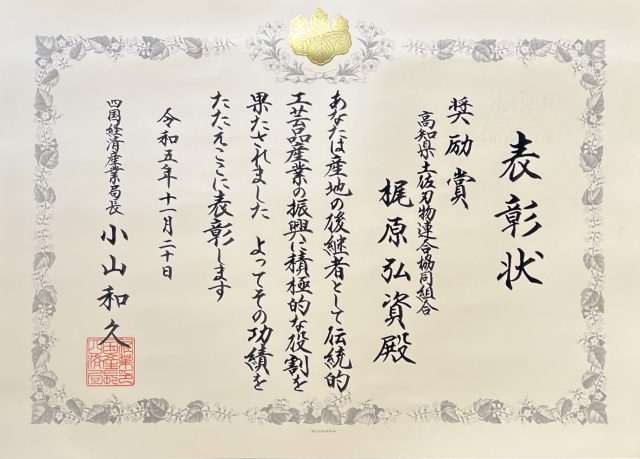 表彰状
奨励賞
高知県土佐刃物連合協同組合
梶原弘資殿
あなたは産地の後継者として伝統的
工芸品産業の振興に積極的な役割を
果たされました よってその功績を
たたえここに表彰します
令和五年十一月二十日
四国経済産業局長
小山和久